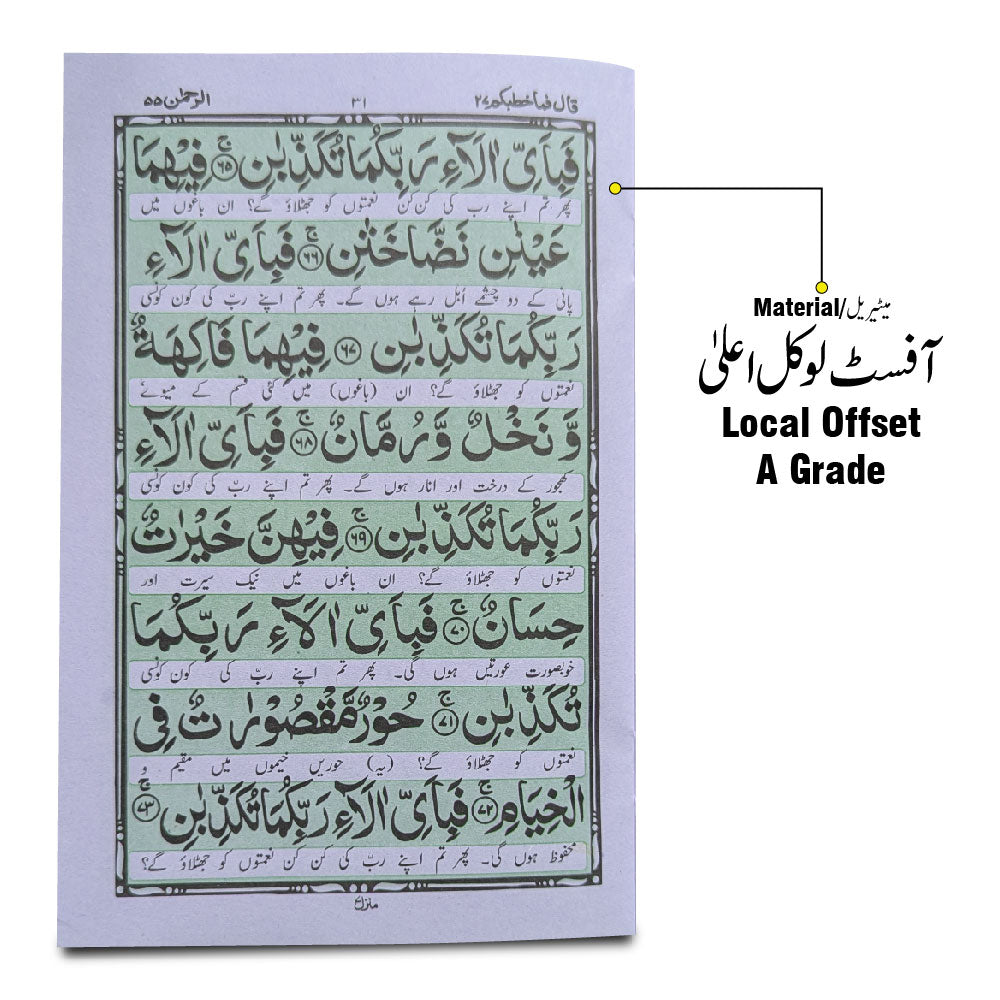 قال فما خطبکم ۲۷ ۳۱ الرحمٰن ۵۵
فَبِاَىِّ اٰلَآءِ رَبِّكُمَا تُكَذِّبٰنِ ۚ﴿۶۵﴾ فِيْهِمَا
پھر تم اپنے رب کی کن کن نعمتوں کو جھٹلاؤ گے؟ ان باغوں میں
عَيْنٰنِ نَضَّاخَتٰنِ ۚ﴿۶۶﴾ فَبِاَىِّ اٰلَآءِ
پانی کے دو چشمے اُبل رہے ہوں گے۔ پھر تم اپنے ربّ کی کون کونسی
رَبِّكُمَا تُكَذِّبٰنِ ﴿۶۷﴾ فِيْهِمَا فَاكِهَةٌ
نعمتوں کو جھٹلاؤ گے؟ ان (باغوں) میں کئی قسم کے میوئے
وَّنَخْلٌ وَّرُمَّانٌ ۚ﴿۶۸﴾ فَبِاَىِّ اٰلَآءِ
کھجور کے درخت اور انار ہوں گے۔ پھر تم اپنے ربّ کی کون کونسی
رَبِّكُمَا تُكَذِّبٰنِ ۚ﴿۶۹﴾ فِيْهِنَّ خَيْرٰتٌ
نعمتوں کو جھٹلاؤ گے؟ ان باغوں میں نیک سیرت اور
حِسَانٌ ۚ﴿۷۰﴾ فَبِاَىِّ اٰلَآءِ رَبِّكُمَا
خوبصورت عورتیں ہوں گی۔ پھر تم اپنے ربّ کی کون کونسی
تُكَذِّبٰنِ ۚ﴿۷۱﴾ حُوْرٌ مَّقْصُوْرٰتٌ فِى
نعمتوں کو جھٹلاؤ گے؟ (یہ) حوریں خیموں میں مقیم و
الْخِيَامِ ۚ﴿۷۲﴾ فَبِاَىِّ اٰلَآءِ رَبِّكُمَا تُكَذِّبٰنِ ۚ﴿۷۳﴾
محفوظ ہوں گی۔ پھر تم اپنے ربّ کی کن کن نعمتوں کو جھٹلاؤ گے؟
Material/میٹیریل
آفسٹ لوکل اعلیٰ
Local Offset
A Grade